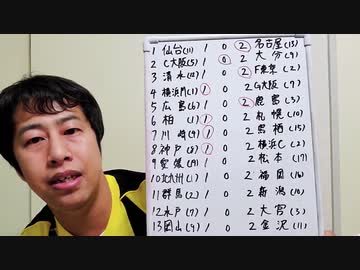 1 仙台(11) 1 0 ② 名古屋(13)
2 C大阪(5) 1 ⓪ 2 大分(9)
3 清水(12) 1 0 ② F東京(2)
4 横浜M(1) ① 0 2 G大阪(7)
5 広島(6) 1 0 ② 鹿島(3)
6 柏(1) ① 0 2 札幌(10)
7 川崎(4) ① 0 2 鳥栖(15)
8 神戸(8) ① 0 2 横浜C(2)
9 愛媛(19) 1 0 2 松本(17)
10 北九州(1) 1 0 2 福岡(16)
11 群馬(2) 1 0 2 新潟(10)
12 水戸(7) 1 0 2 大宮(3)
13 岡山(9) 1 0 2 金沢(11)